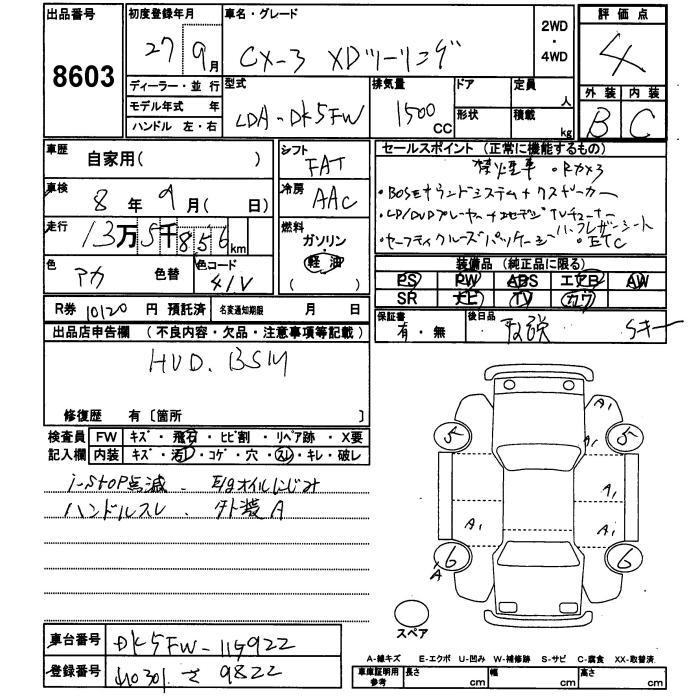 出品番号
8603
初度登録年月
27 9月
車名・グレード
CX-3 XDツーリング
2WD
・
4WD
評価点
4
外装 内装
B C
ディーラー・並行
モデル年式 年
ハンドル 左・右
型式
LDA-DK5FW
排気量
1500 CC
ドア
形状
定員 人
積載 kg
車歴
自家用( )
シフト
FAT
車検
8年9月( 日)
冷房
AAC
走行
13万5千856km
燃料
ガソリン・
軽油
( )
色
アカ 色替
色コード
41V
セールスポイント (正常に機能するもの)
禁煙車 ・Rカメラ
・BOSEサウンドシステム+クスピーカー
・CD/DVDプレーヤー+地デジTVチューナー
ハーフレザーシート
・セーフティクルーズパッケージ ・ETC
装備品 (純正品に限る)
PS PW ABS エアB AW
SR ナビ TV カワ
R券 10120円 預託済
名変通知期限 月 日
保証書
有・無
後日品
取説 Sキー
出品店申告欄 (不良内容・欠品・注意事項等記載)
HUD. BSM
修復歴 有〔箇所 〕
検査員
記入欄
FW キズ・飛石・ヒビ割・リペア跡・X要
内装 キズ・汚レ・コゲ・穴・スレ・キレ・破レ
i-STOP点滅. E/gオイルにじみ
ハンドルスレ. 外装A
A1
A1
5 5
A1
A1 A1
6 6
A
スペア
車台番号 DK5FW-119922
登録番号 40301 さ 9822
A-線キズ E-エクボ U-凹み W-補修跡 S-サビ C-腐食 XX-取替済
車庫証明用
参考
長さ cm 幅 cm 高さ cm